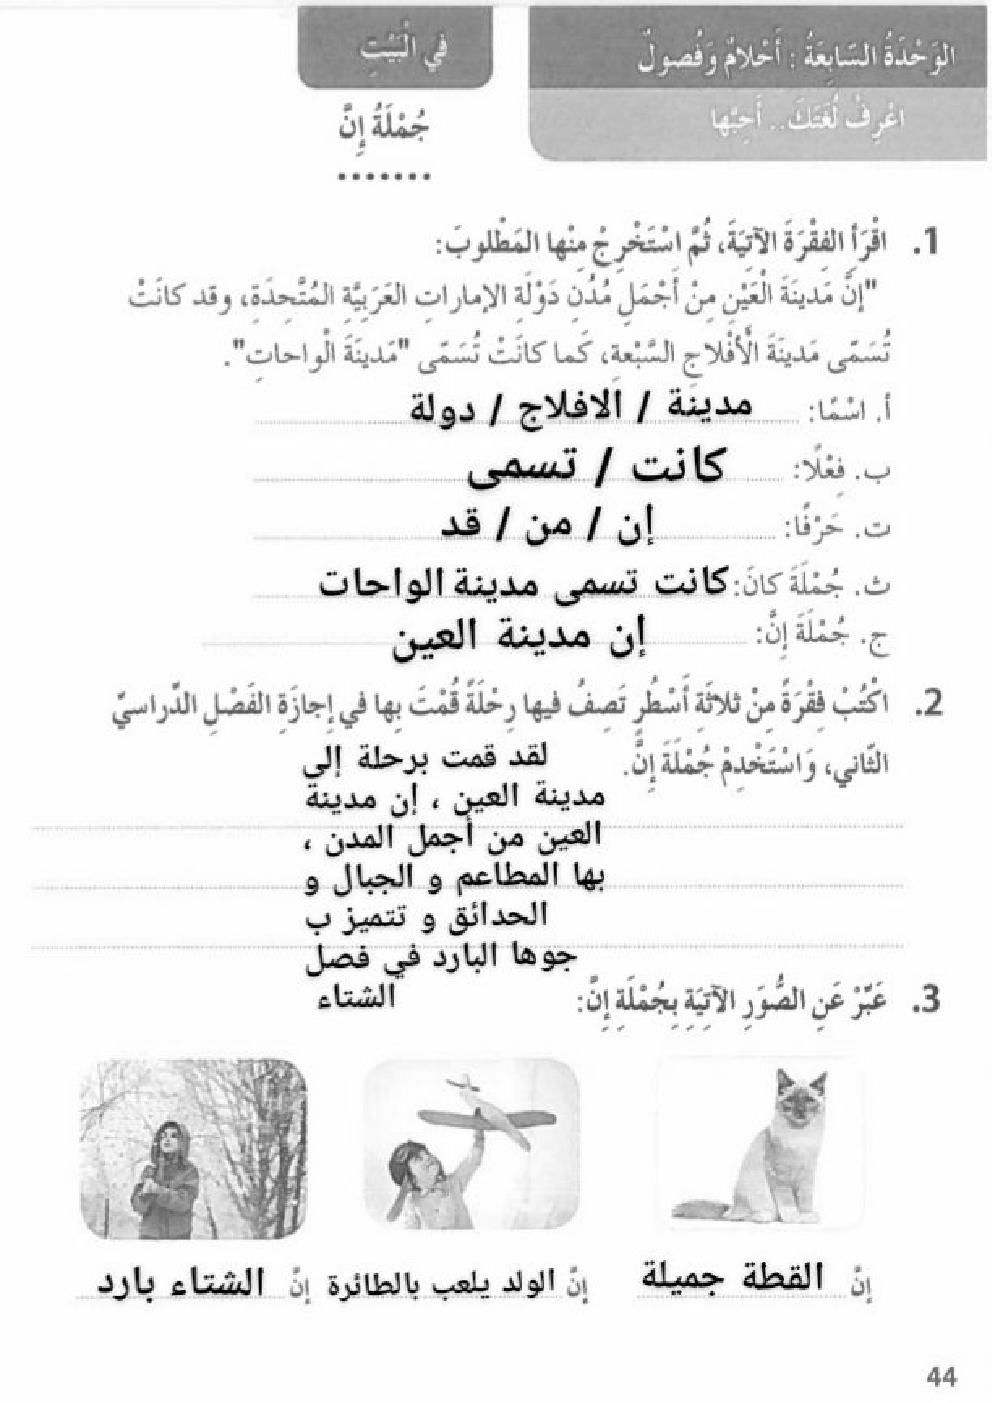 الوَحْدَةُ السّابِعَةُ : أَحْلامٌ وَفُصولٌ
في الْبَيْتِ
اعْرِفْ لُغَتَكَ.. أَحِبَّها
جُمْلَةُ إِنَّ
.......
1. اقْرَأ الفِقْرَةَ الآتِيَةَ، ثُمَّ اسْتَخْرِجْ مِنْها المَطْلوبَ:
"إنَّ مَدينَةَ الْعَيْنِ مِنْ أَجْمَلِ مُدُنِ دَوْلَةِ الإماراتِ العَرَبِيَّةِ المُتَّحِدَةِ، وقد كانَتْ
تُسَمّى مَدينَةَ الْأَفْلاجِ السَّبْعةِ، كَما كانَتْ تُسَمّى "مَدينَةَ الْواحاتِ".
أ. اسْمًا: مدينة / الافلاج / دولة
ب. فِعْلًا: كانت / تسمى
ت. حَرْفًا: إن / من / قد
ث. جُمْلَةَ كانَ: كانت تسمى مدينة الواحات
ج. جُمْلَةَ إنَّ: إن مدينة العين
2. اكْتُبْ فِقْرَةً مِنْ ثلاثَةِ أَسْطُرٍ تَصِفُ فيها رِحْلَةً قُمْتَ بِها في إجازَةِ الفَصْلِ الدِّراسيِّ
الثّاني، وَاسْتَخْدِمْ جُمْلَةَ إنَّ.
لقد قمت برحلة إلى
مدينة العين ، إن مدينة
العين من أجمل المدن ،
بها المطاعم و الجبال و
الحدائق و تتميز ب
جوها البارد في فصل
الشتاء
3. عَبِّرْ عَنِ الصُّوَرِ الآتِيَةِ بِجُمْلَةِ إنَّ:
إنَّ القطة جميلة
إنَّ الولد يلعب بالطائرة
إنَّ الشتاء بارد
44